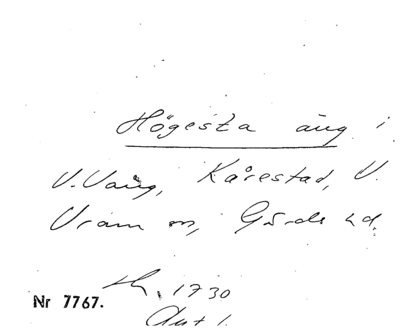 Högesta äng i
V. Vång, Kårestad, V.
Vram sn, Gärds hd.
1730
Nr 7767.